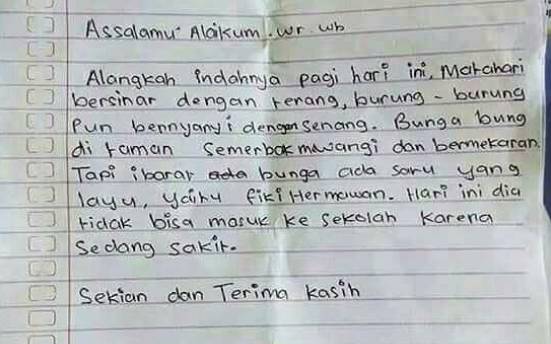 Assalamu' Alaikum. wr. wb
Alangkah indahnya pagi hari ini, Matahari
bersinar dengan terang, burung - burung
Pun bernyanyi dengan senang. Bunga bung
di taman semerbak mewangi dan bermekaran.
Tapi ibarat bunga ada satu yang
layu, yaitu fiki Hermawan. Hari ini dia
tidak bisa masuk ke sekolah karena
Sedang sakit.
Sekian dan Terima kasih